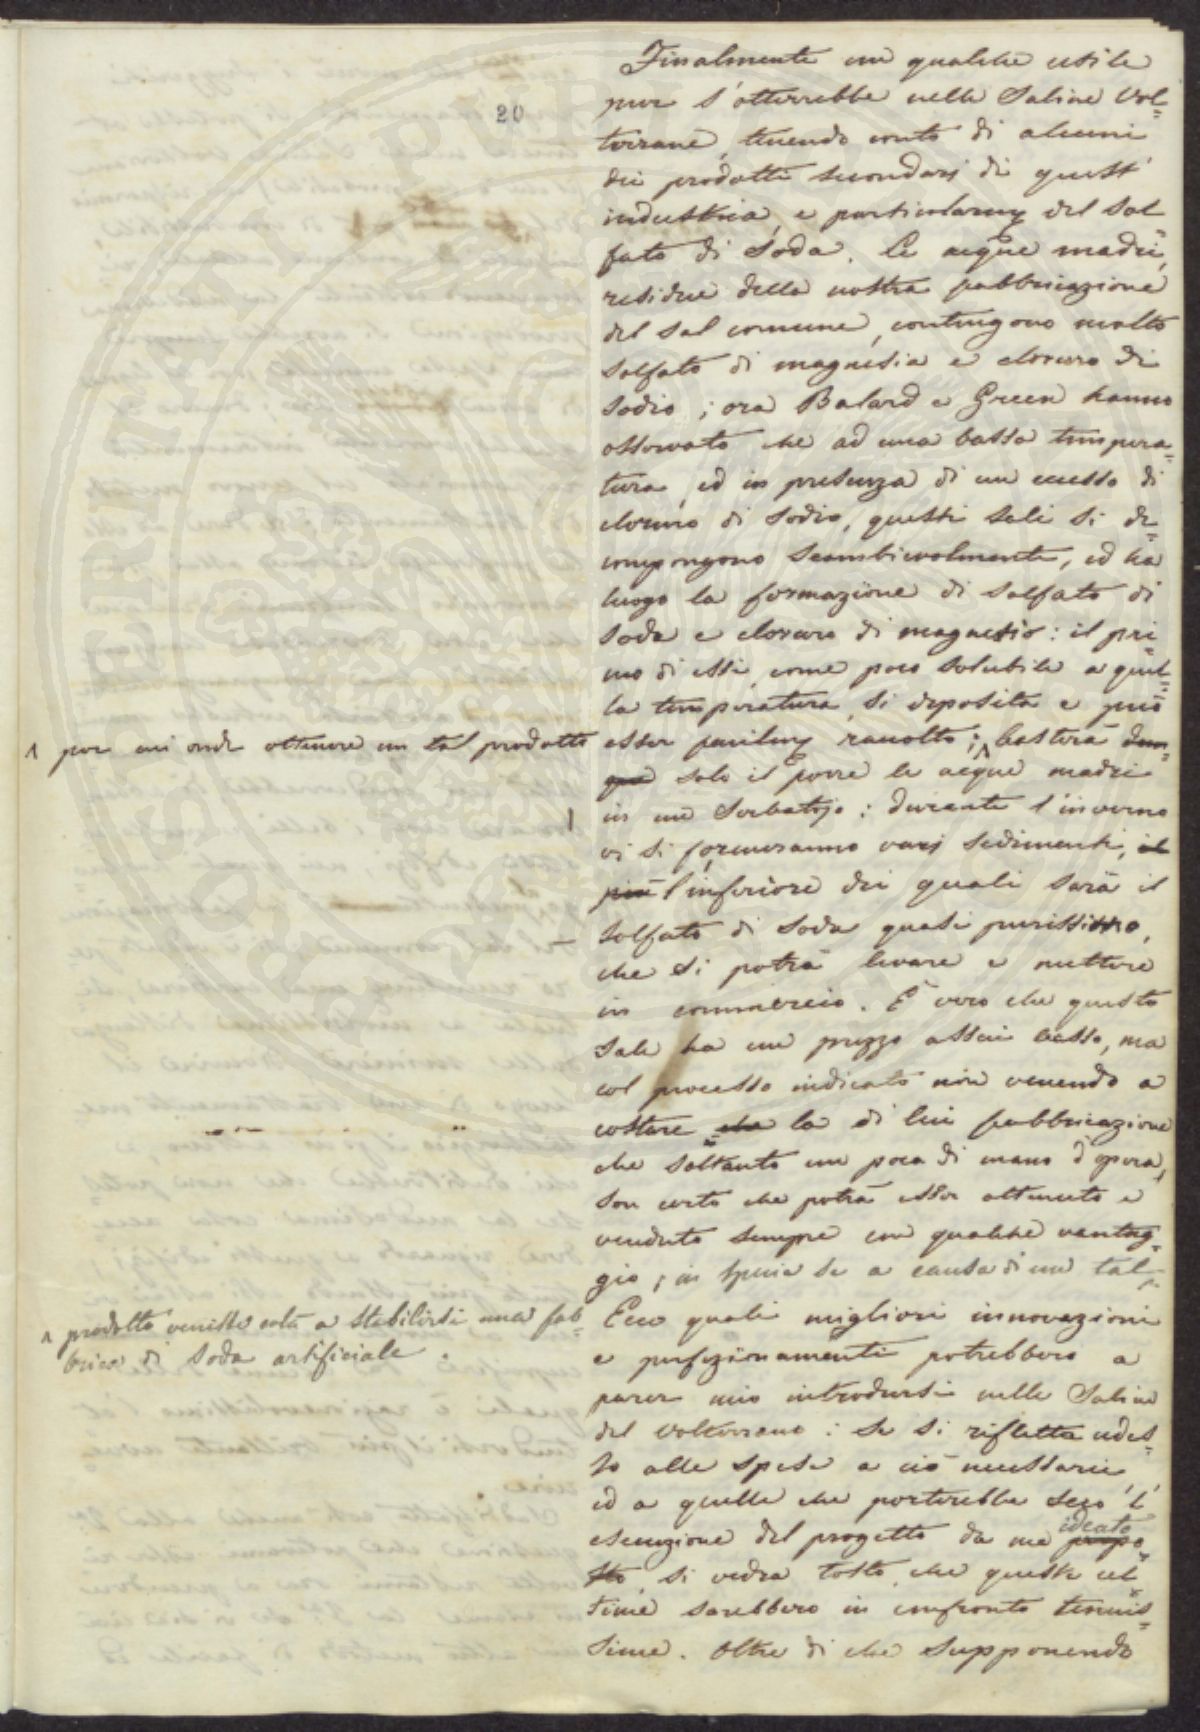 20
Finalmente un qualche utile
pur s'otterrebbe nelle Saline Vol=
terrane, tenendo conto di alcuni
dei prodotti secondarj di quest'
industria, e particolarmẽ del sol
fato di Soda. Le acque madri,
residue della nostra fabbricazione
del sal comune, contengono molto
solfato di magnesia e cloruro di
sodio; ora Balard e Green hanno
osservato che ad una bassa tempera=
tura, ed in presenza di un eccesso di
cloruro di sodio, questi sali si de=
compongono scambievolmente, ed ha
luogo la formazione di solfato di
soda e cloruro di magnesio: il pri=
mo di essi, come poco solubile a quel=
la temperatura, si deposita e può
esser facilmẽ raccolto; ^ basterà dun=
que solo il porre le acque madri
in un serbatojo: durante l'inverno
vi si formeranno varj sedimenti, il
più l'inferiore dei quali sarà il
solfato di soda quasi purissimo,
che si potrà levare e mettere
in commercio. È vero che questo
sale ha un prezzo assai basso, ma
col processo indicato non venendo a
costare che la di lui fabbricazione
che soltanto un poca di mano d'opera,
son certo che potrà esser ottenuto e
venduto sempre con qualche vantag=
gio; in specie se a causa di un tal ^
^ per cui onde ottenere un tal prodotto
^ prodotto venisse costà a stabilirsi una fab=
brica di soda artificiale.
Ecco quali migliori innovazioni
e perfezionamenti potrebbero a
parer mio introdursi nelle Saline
del Volterrano: se si rifletta ades=
so alle spese a ciò necessarie,
ed a quelle che porterebbe seco l'
esecuzione del progetto da me propo=
ideato
sto, si vedrà tosto, che queste ul=
time sarebbero in confronto tenuis=
sime. Oltre di che supponendo